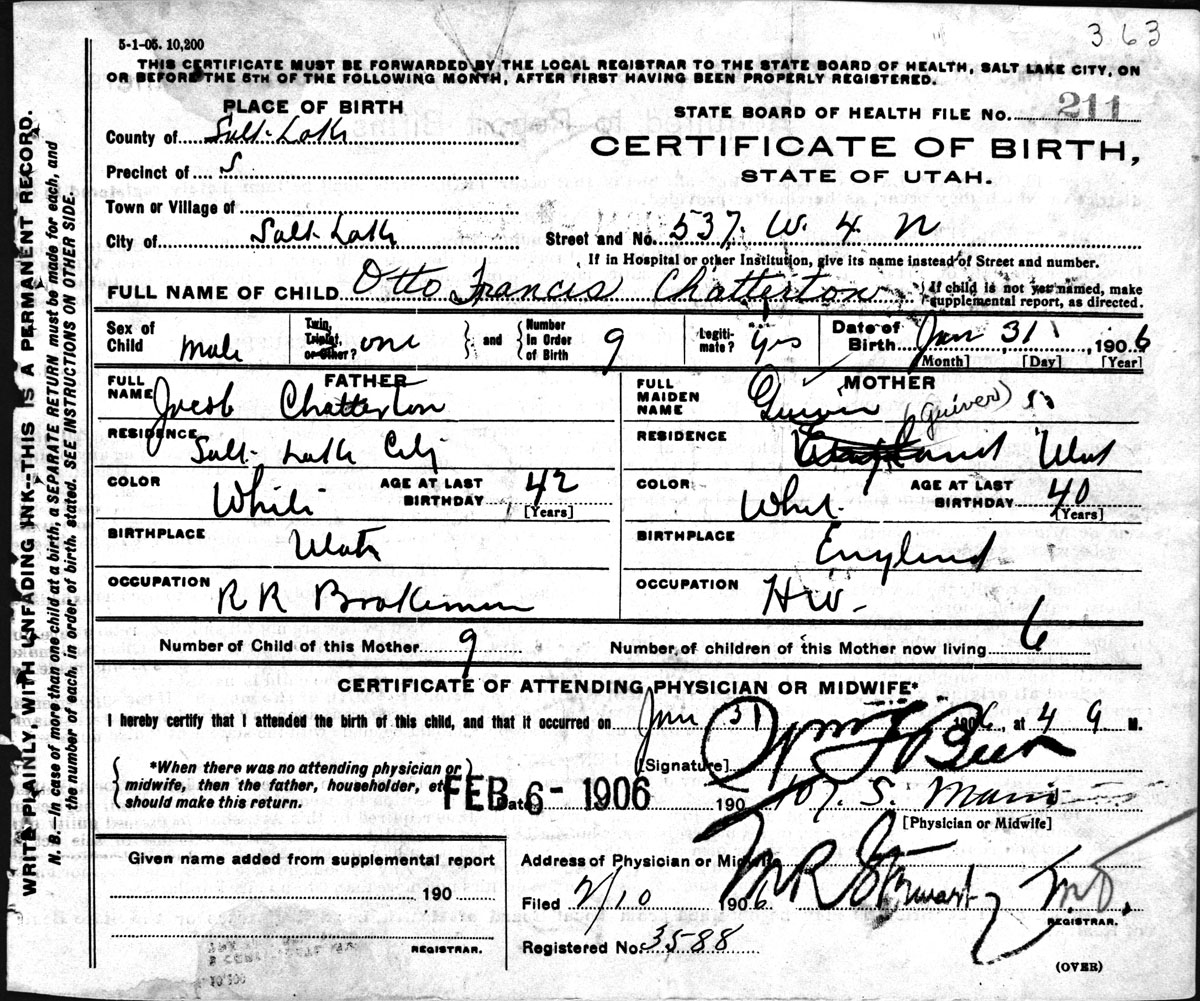 363
5-1-05. 10,200
THIS CERTIFICATE MUST BE FORWARDED BY THE LOCAL REGISTRAR TO THE STATE BOARD OF HEALTH, SALT LAKE CITY, ON
OR BEFORE THE 5TH OF THE FOLLOWING MONTH, AFTER FIRST HAVING BEEN PROPERLY REGISTERED.
WRITE PLAINLY, WITH UNFADING INK--THIS IS A PERMANENT RECORD.
N. B.--In case of more than one child at a birth, a SEPARATE RETURN must be made for each, and
the number of each, in order of birth, stated. SEE INSTRUCTIONS ON OTHER SIDE.
PLACE OF BIRTH
STATE BOARD OF HEALTH FILE NO. 211
County of Salt Lake
CERTIFICATE OF BIRTH,
Precinct of S
STATE OF UTAH.
Town or Village of
City of Salt Lake Street and No. 537. W. 4 N
If in Hospital or other Institution, give its name instead of Street and number.
FULL NAME OF CHILD Otto Francis Chatterton { If child is not yet named, make supplemental report, as directed.
Sex of Child Male Twin, Triplet, or Other? one } and { Number In Order of Birth 9 Legitimate? Yes Date of Birth Jan 31, 1906
[Month] [Day] [Year]
FATHER
FULL NAME Jacob Chatterton
RESIDENCE Salt Lake City
COLOR White AGE AT LAST BIRTHDAY 42 [Years]
BIRTHPLACE Utah
OCCUPATION R R Brakeman
MOTHER
FULL MAIDEN NAME (Guiver)
RESIDENCE
COLOR Whit. AGE AT LAST BIRTHDAY 40 [Years]
BIRTHPLACE England
OCCUPATION HW.
Number of Child of this Mother 9 Number of children of this Mother now living 6
CERTIFICATE OF ATTENDING PHYSICIAN OR MIDWIFE*
I hereby certify that I attended the birth of this child, and that it occurred on Jan 31 1906, at 4 a M.
{ *When there was no attending physician or
midwife, then the father, householder, etc.
should make this return. }
[Signature] Wm F Beer
Date FEB 6- 1906 190 107. S. Main
[Physician or Midwife]
Given name added from supplemental report
190
REGISTRAR.
Address of Physician or Midwife
Filed 2/10 1906 M R Stewart M.D.
REGISTRAR.
Registered No. 3588
(OVER)